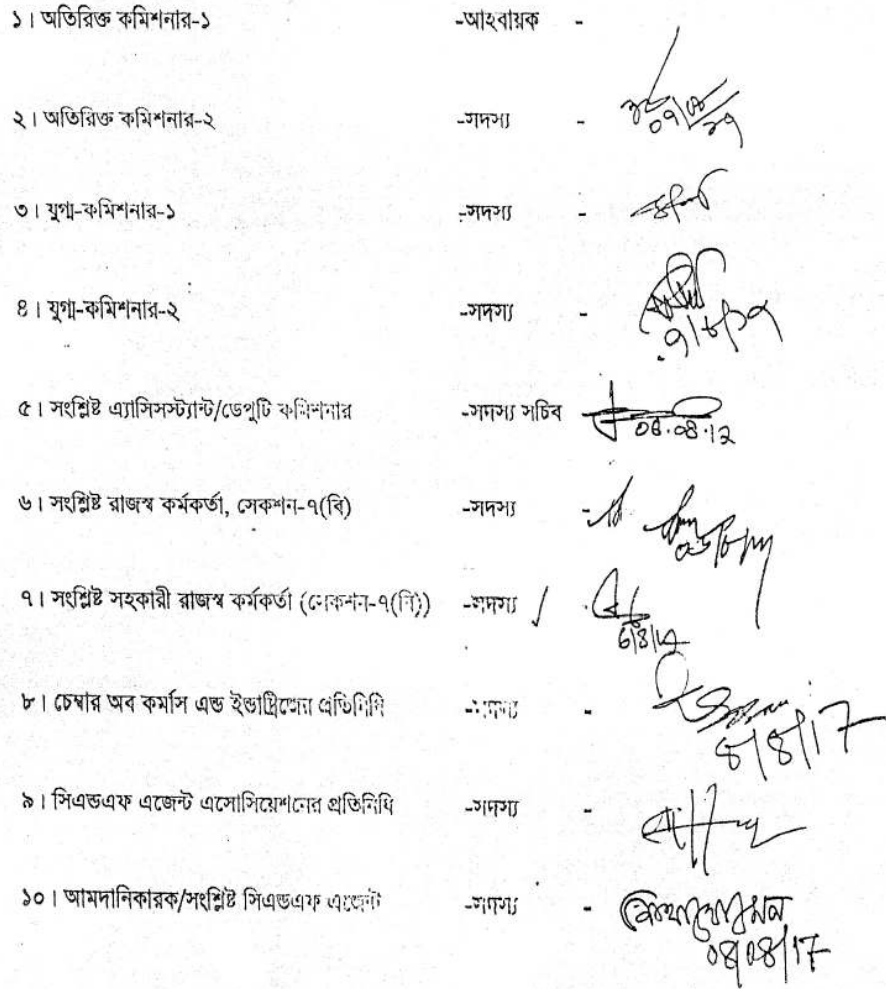 ১। অতিরিক্ত কমিশনার-১ -আহবায়ক -
২। অতিরিক্ত কমিশনার-২ -সদস্য -
৩। যুগ্ম-কমিশনার-১ -সদস্য -
৪। যুগ্ম-কমিশনার-২ -সদস্য -
৫। সংশ্লিষ্ট এ্যাসিসস্ট্যান্ট/ডেপুটি কমিশনার -সদস্য সচিব
08.08.17
৬। সংশ্লিষ্ট রাজস্ব কর্মকর্তা, সেকশন-৭(বি) -সদস্য -
৭। সংশ্লিষ্ট সহকারী রাজস্ব কর্মকর্তা (সেকশন-৭(বি)) -সদস্য
৮। চেম্বার অব কর্মাস এন্ড ইন্ডাষ্ট্রিজের প্রতিনিধি -সদস্য -
8/8/17
৯। সিএন্ডএফ এজেন্ট এসোসিয়েশনের প্রতিনিধি -সদস্য -
১০। আমদানিকারক/সংশ্লিষ্ট সিএন্ডএফ এজেন্ট -সদস্য -
08/08/17